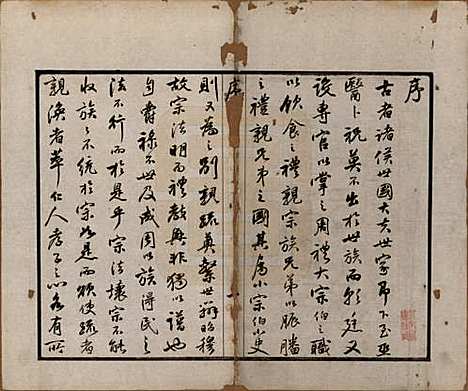 序
古者諸侯世國大夫世家即下至巫
醫卜祝莫不出於世族而朝廷又
設專官以掌之周禮大宗伯之職
以飲食之禮親宗族兄弟以脤膰
之禮親兄弟之國其屬小宗伯小史
序
則又為之別親疏奠繫世辨昭穆
故宗法明而禮教興非獨以譜也
自爵祿不世及國以族得民之
法不行而於是乎宗法壞宗不能
收族〻不統於宗如是而欲使疏者
親渙者萃仁人孝子之心必有所